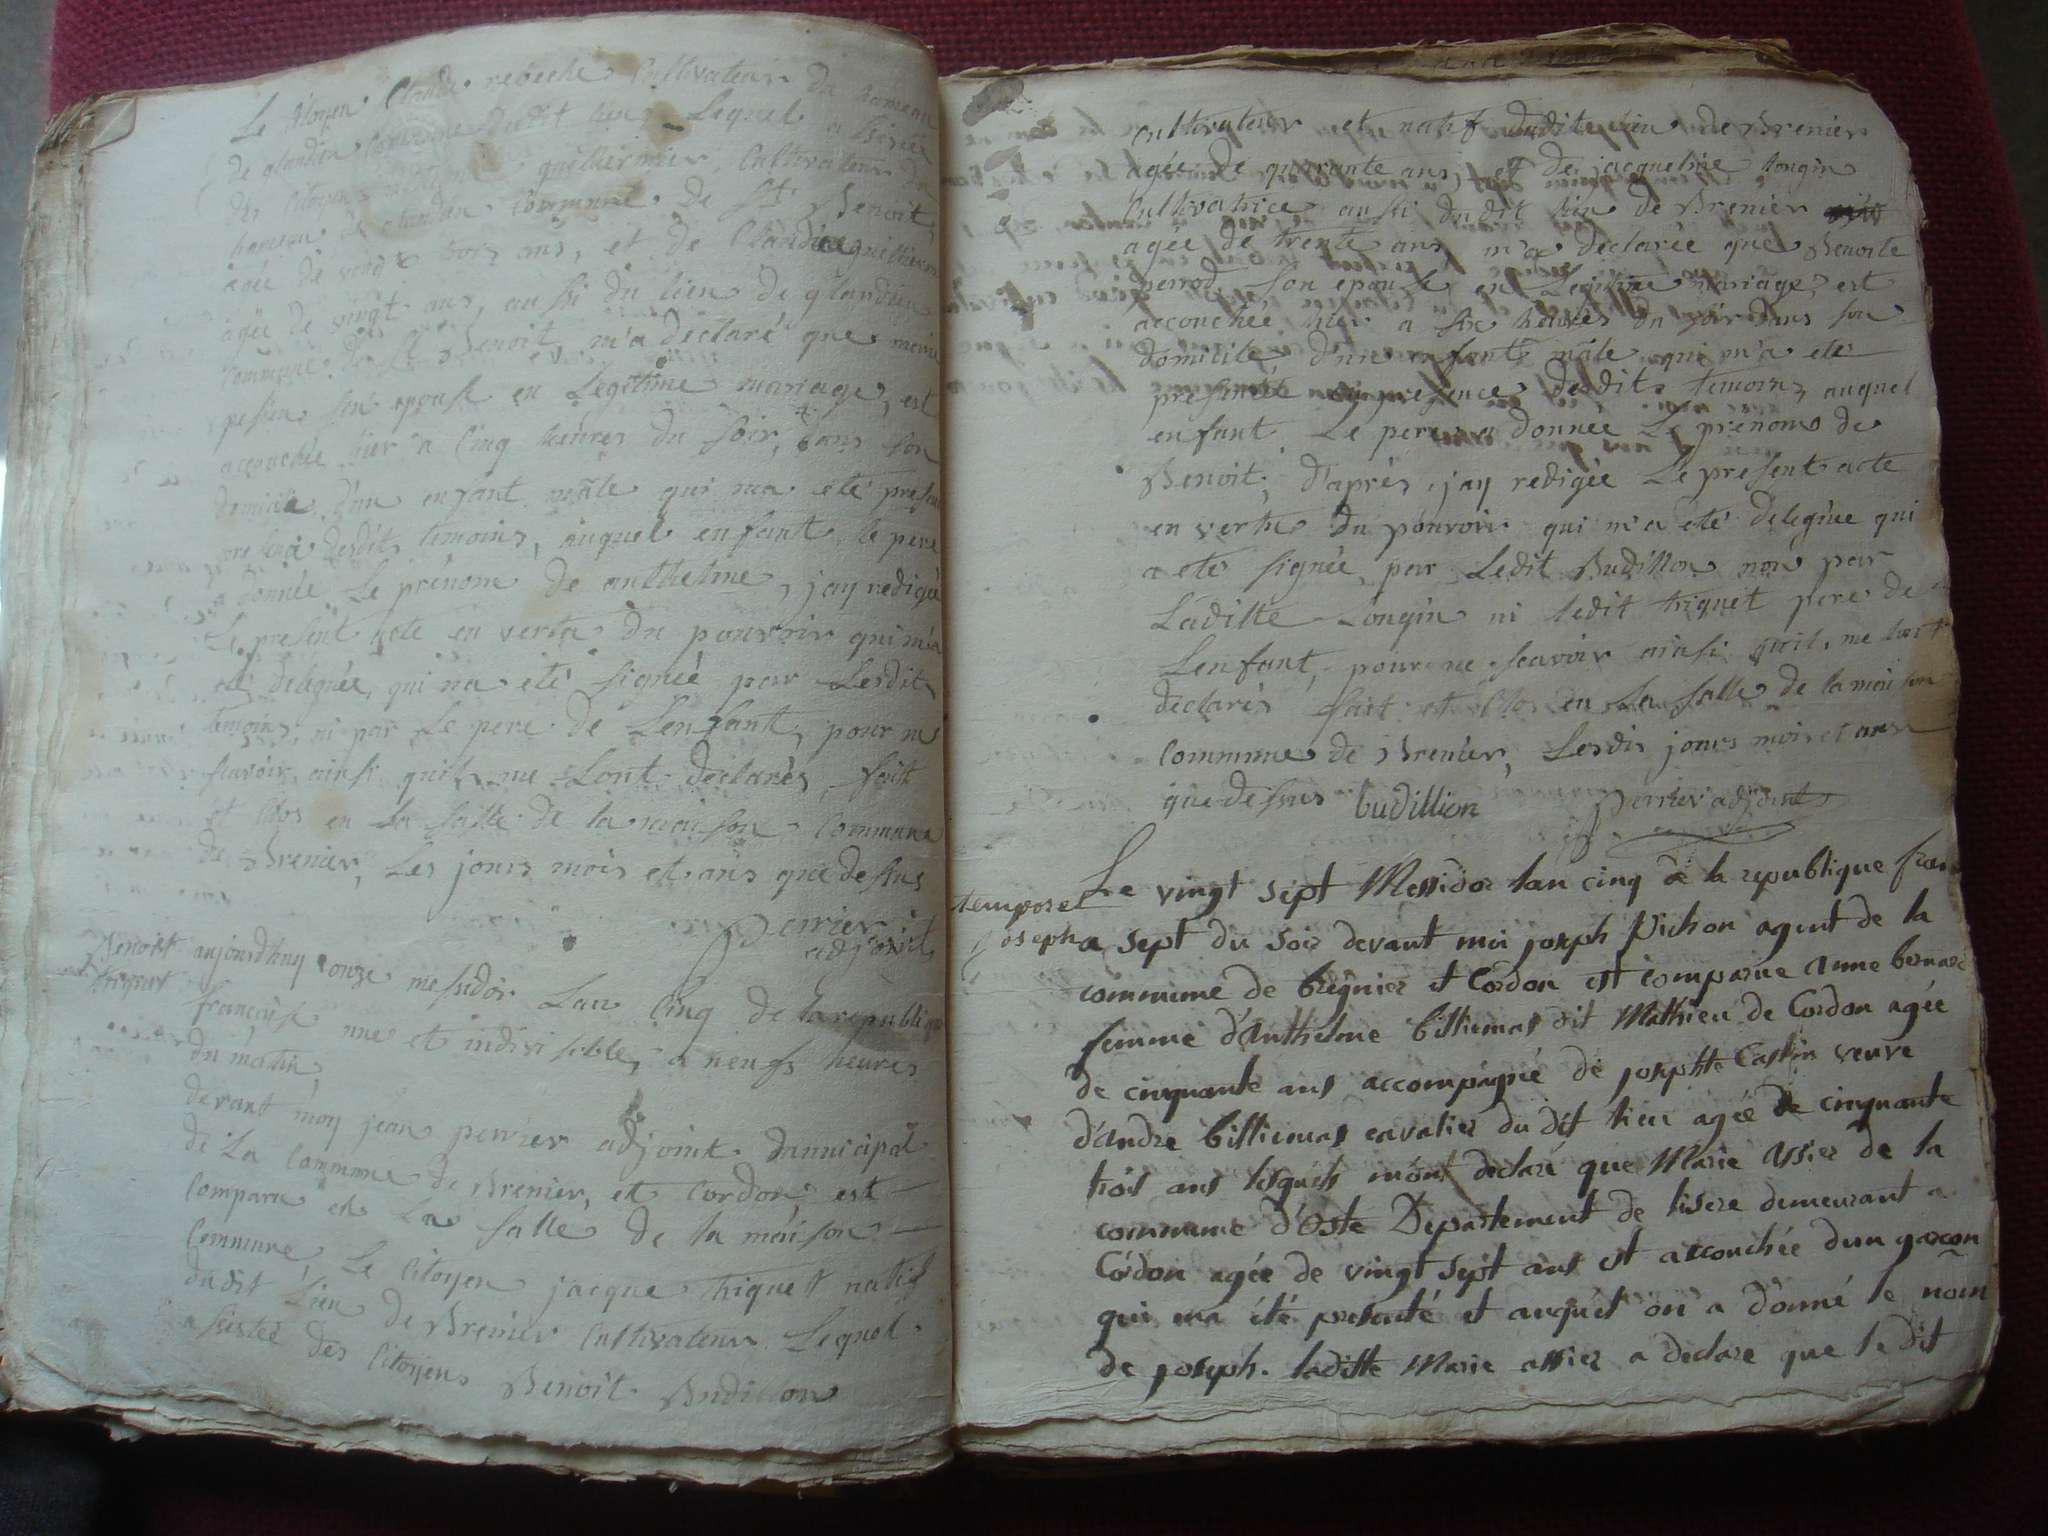 Le Citoyen Claude rebeche Cultivateur du hameau
de glandieu Commune dudit lieu Lequel a sistée
des Citoyens guillermier, Cultivateur du
hameau de glandieu Commune de St Benoit,
agée de vingt trois ans, et de Claudine guillerm
agée de vingt ans, aussi du lieu de glandieu
Commune de St Benoit, m'a declaré que
son epouse en Legitime mariage, est
accouchée hier a Cinq heures du soir, dans son
domicile d'un enfant mâle qui ma eté presen
desdits temoins, auquel enfant le pere
a donnée Le prénom de anthelme, j'ay redigée
Le present acte en vertu du pouvoir qui m'a
eté deleguée, qui n'a eté signée par Lesdits
temoins, ni par Le pere de L'enfant, pour ne
scavoir ainsi quils me Lont declarés, fait
et Clos en La salle de la maison Commune
de Brenier, Les jours mois et ans que dessus
Perrier
adjoint
Benoit
triquet
aujourdhuy onze messidor Lan Cinq de la republique
françoise une et indivisible, a neufs heures
du matin,
devant moy jean perrier adjoint municipal
de La Commune de Brenier, et Cordon, est
Comparu en La salle de la maison
Commune, Le Citoyen jacque triquet natif
dudit Lieu de Brenier Cultivateur Lequel
a sistée des Citoyens Benoit Budillon
Cultivateur et natif dudit lieu de Brenier
agée de quarante ans, et de jacqueline Longin
Cultivatrice aussi dudit lieu de Brenier
agée de trente ans m'a declarée que Benoite
perrod son epouse en Legitime mariage, est
accouchée hier a six heures du soir dans son
domicile d'un enfant mâle qui m'a eté
presenté en presence desdits temoins, auquel
enfant Le pere a donnée Le prenom de
Benoit, d'après j'ay redigée Le present acte
en vertu du pouvoir qui m'a eté deleguée qui
a eté signée par Ledit Budillon non par
Laditte Longin ni ledit triquet pere de
Lenfant, pour ne scavoir ainsi quil. me lont
declarés fait et Clos en La salle de la maison
Commune de Brenier, Lesdis jours mois et ans
que dessus budillion Perrier adjoint
temporel
joseph
Le vingt sept Messidor lan cinq de la republique fran
a sept du soir devant moi joseph Pichon agent de la
commune de bregnier et Cordon est comparue anne bernard
femme d'Anthelme billiemas dit Mathieu de Cordon agée
de cinquante ans accompagnée de josephte Castin veuve
d'andre billiemas cavalier du dit lieu agée de cinquante
trois ans lesquels m'ont declaré que Marie assier de la
commune d'Oste Departement de lisere demeurant a
Cordon agée de vingt sept ans est accouchée dun garcon
qui ma été presenté et auquel on a donné le nom
de joseph. laditte Marie assier a declare que le dit